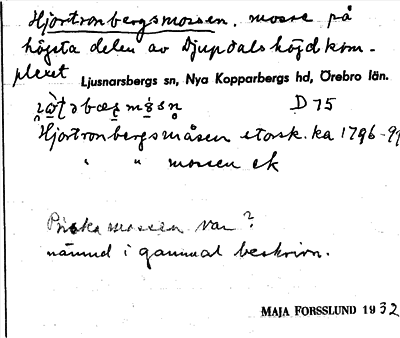 Hjortronbergsmossen. mosse på
högsta delen av Djupdalshöjdkom-
plexet Ljusnarsbergs sn, Nya Kopparbergs hd, Örebro län.
D 75
Hjortronbergsmåsen storsk. ka 1796-99
" " mossen ek
mossen var?
nämnd i gammal beskrivn.
MAJA FORSSLUND 1932